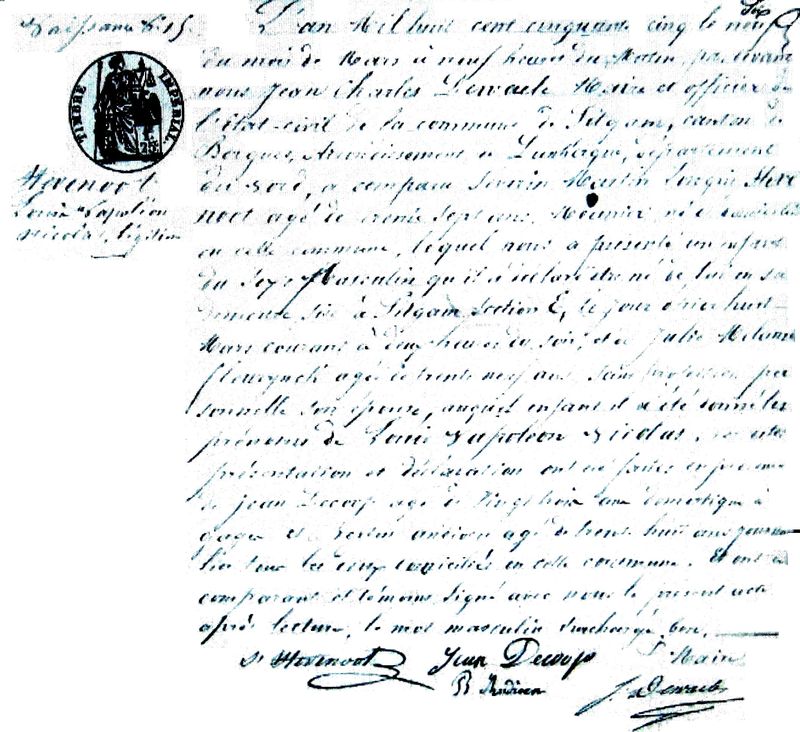 Naissance N° 15
L'an Mil huit cent cinquante cinq le neuf
du mois de Mars à neuf heures du Matin, par devant
nous Jean Charles Dewaele Maire et officier de
l'état-civil de la commune de Pitgam, canton de
Bergues, Arrondissement de Dunkerque, département
du Nord, a comparu Severin Martin Hove
noot agé de trente sept ans, Meunier, né et domicilié
en cette commune, lequel nous a présenté un enfant
du Sexe Masculin qu'il a déclaré être né de lui en sa
demeure sise à Pitgam section E, le jour d'hier huit
Mars courant à deux heures du soir, et de Julie Melanie
agée de trente neuf ans, sans profession per
sonnelle son épouse, auquel enfant il a été donné les
prénoms de Louis Napoleon Nicolas,
présentation et déclaration ont été faites en presence
de Jean Decoop agé de vingt trois ans domestique à
gages et ancien agé de trente huit ans
tous les deux domiciliés en cette commune. Et ont le
comparant et témoins signé avec nous le present acte
après lecture, le mot masculin surchargé bon.
TIMBRE IMPÉRIAL
Hovenoot
Louis Napoléon
Nicolas, légitime
St Hovenoot Jean Decoop Le Maire
J. Dewaele